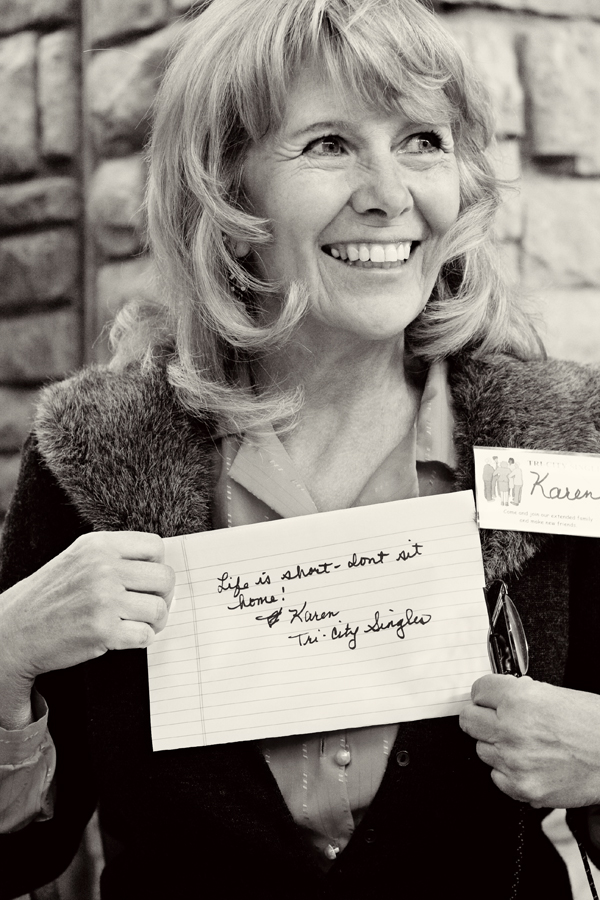 Karen
Come and join our extended family
and make new friends.
Life is short - dont sit
home!
Karen
Tri-City Singles